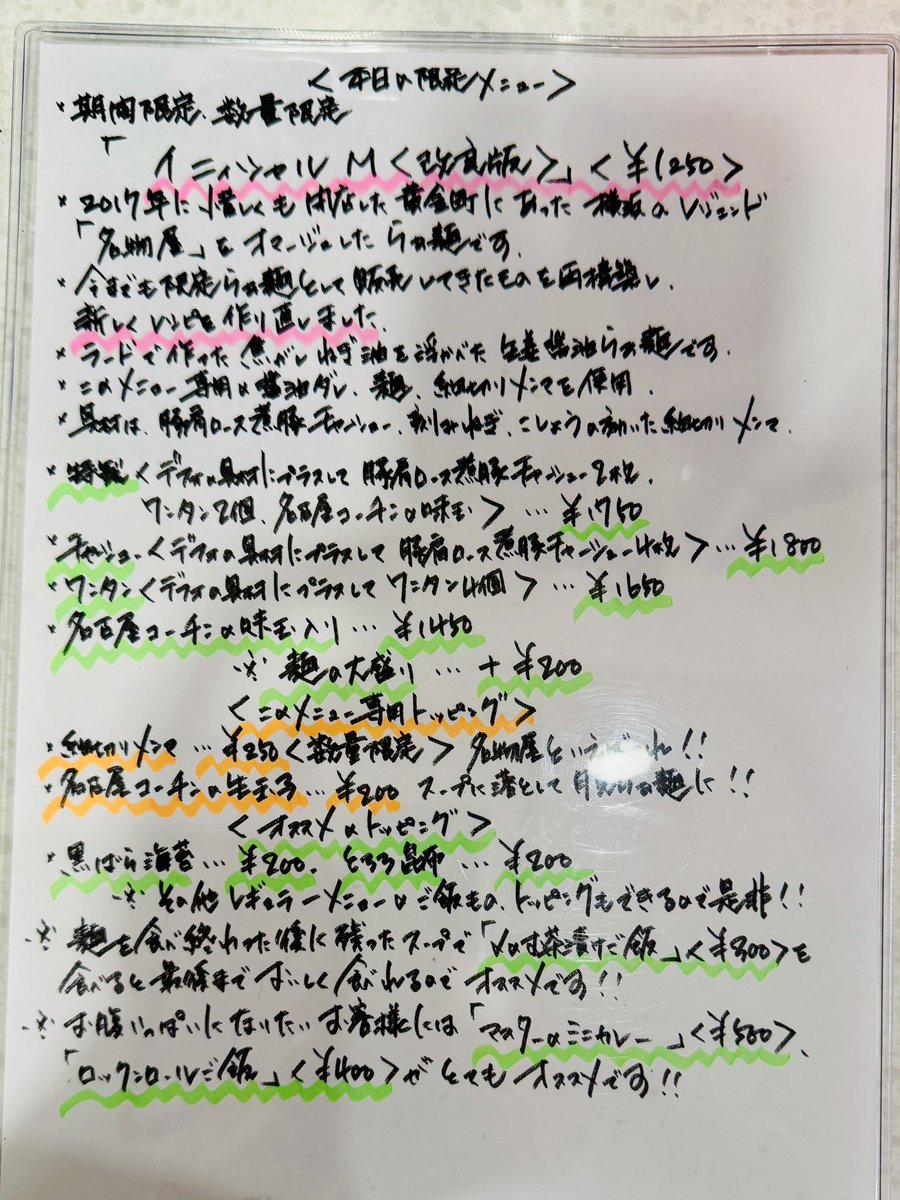 <本日の限定メニュー>
* 期間限定、数量限定
「イニィシャル M <改良版>」<¥1250>
* 2017年に惜しくも閉店した黄金町にあった横浜のレジェンド
「名物屋」をオマージュしたらぁ麺です。
* 今までも限定らぁ麺として販売してきたものを再構築し、
新しくレシピを作り直しました。
* ラードで作った焦がしねぎ油を浮かべた生姜醤油らぁ麺です。
* このメニュー専用の醤油ダレ、麺、細切りメンマを使用。
* 具材は、豚肩ロース煮豚チャーシュー、刻みねぎ、こしょうの効いた細切りメンマ。
* 特製<デフォの具材にプラスして豚肩ロース煮豚チャーシュー2枚、
ワンタン2個、名古屋コーチンの味玉> … ¥1750
* チャーシュー<デフォの具材にプラスして豚肩ロース煮豚チャーシュー4枚> … ¥1800
* ワンタン<デフォの具材にプラスしてワンタン4個> … ¥1650
* 名古屋コーチンの味玉入り … ¥1450
※ 麺の大盛り … +¥200
<このメニュー専用トッピング>
* 細切りメンマ … ¥250<数量限定> 名物屋といえばこれ!!
* 名古屋コーチンの生玉子 … ¥200 スープに落として月見らぁ麺に!!
<オススメのトッピング>
* 黒ばら海苔 … ¥200、とろろ昆布 … ¥200
※ その他レギュラーメニューのご飯もの、トッピングもできるので是非!!
※ 麺を食べ終わった後に残ったスープで「〆のお茶漬けご飯」<¥300>を
食べると最後までおいしく食べれるのでオススメです!!
※ お腹いっぱいになりたいお客様には「マスターのミニカレー」<¥500>、
「ロックンロールご飯」<¥400>がとてもオススメです!!